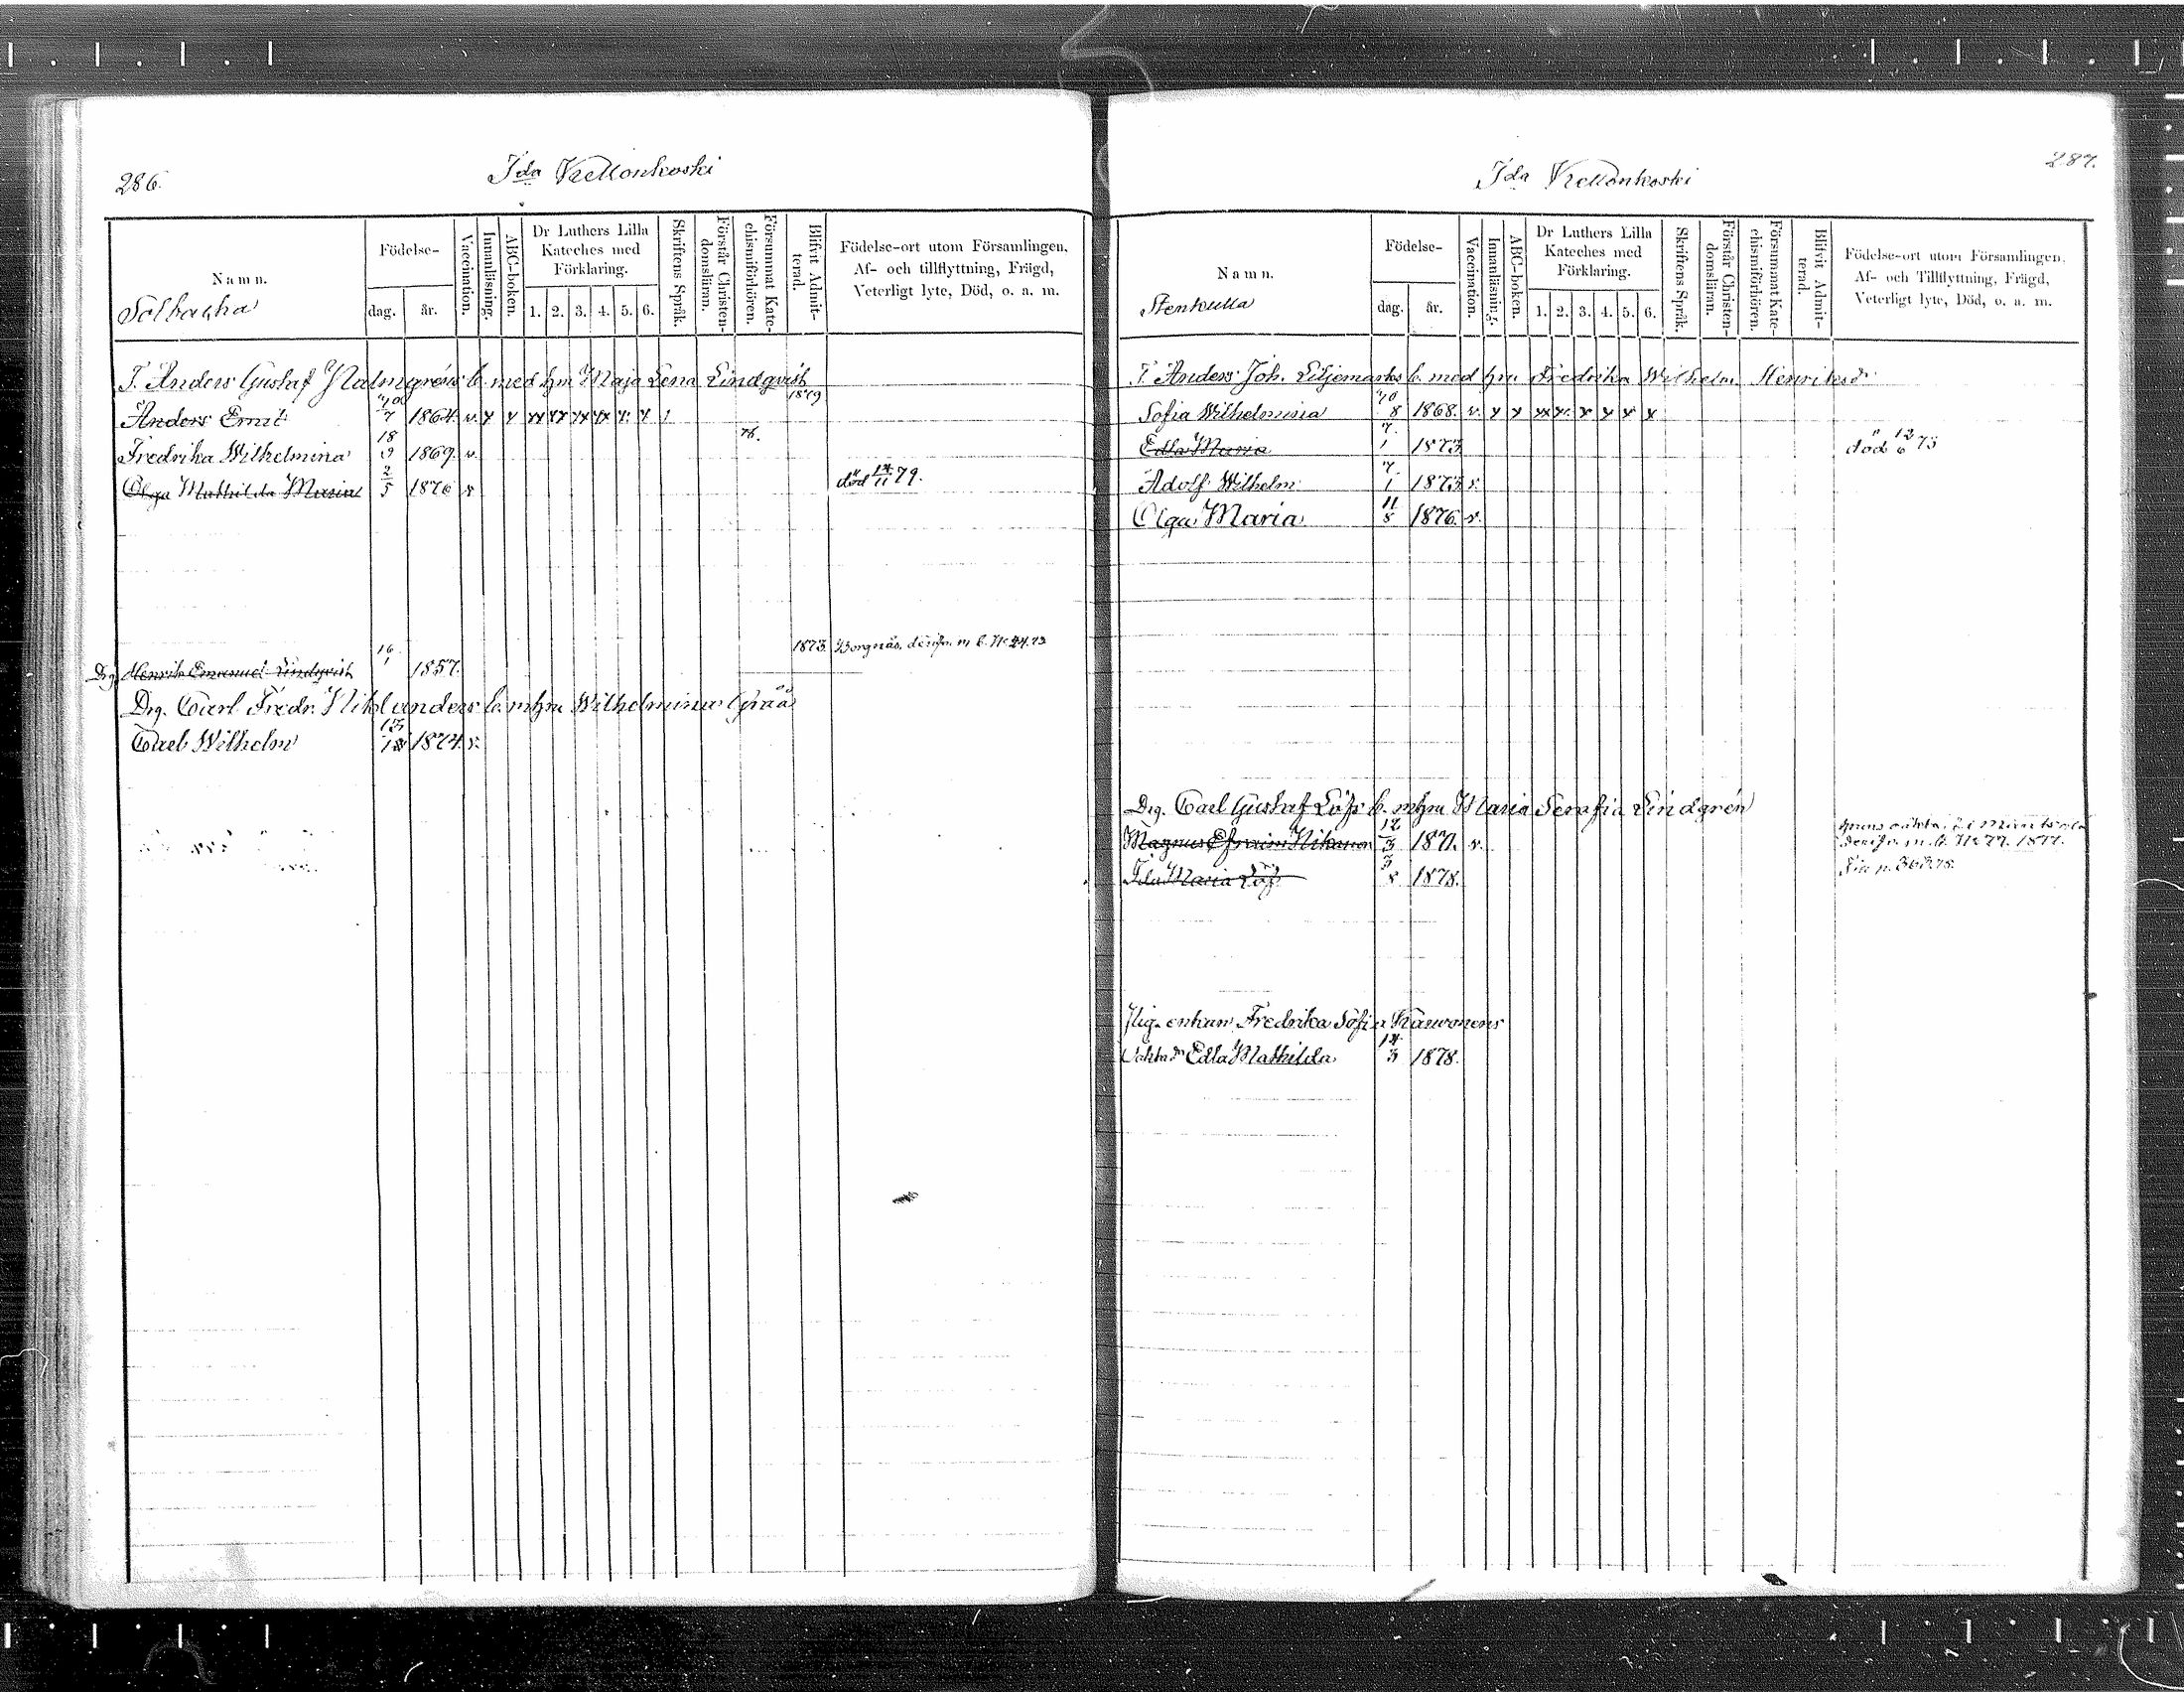 286.
Ida Kellonkoski
Namn.
Solbacka
Födelse-
dag. år.
Vaccination.
Innanläsning.
ABC-boken.
Dr Luthers Lilla
Kateches med
Förklaring.
1. 2. 3. 4. 5. 6.
Skriftens Språk.
Förstår Christen-
domsläran.
Försummat Kate-
chismiförhören.
Blifvit Admit-
terad.
Födelse-ort utom Församlingen,
Af- och tillflyttning, Frägd,
Veterligt lyte, Död, o. a. m.
T. Anders Gustaf Malmgréns b. med hu Maja Lena Lindqvist
Anders Emil 7 1864. v. x x xx xx xx xx x. x 1 1879
Fredrika Wilhelmina 18/9 1869. v. 78.
Olga Mathilda Maria 2/5 1876 v död 14/11 79.
Drg. Henrik Emanuel Lindqvist 16/1 1857. 1873. Borgnäs, derifr. m. b. No 24.73
Drg. Carl Fredr. Niklanders b. m hu Wilhelmina Gråå
Carl Wilhelm 13 1874. v.
287.
Ida Kellonkoski
Namn.
Stenkulla
Födelse-
dag. år.
Vaccination.
Innanläsning.
ABC-boken.
Dr Luthers Lilla
Kateches med
Förklaring.
1. 2. 3. 4. 5. 6.
Skriftens Språk.
Förstår Christen-
domsläran.
Försummat Kate-
chismiförhören.
Blifvit Admit-
terad.
Födelse-ort utom Församlingen,
Af- och Tillflyttning, Frägd,
Veterligt lyte, Död, o. a. m.
T. Anders Joh. Liljemarks b. med hu Fredrika Wilhelm. Henriksdr
Sofia Wilhelmina 8 1868. v. x x xx x. x x x x
Edla Maria 7/1 1873 död 12/6 73
Adolf Wilhelm 7/1 1873 v.
Olga Maria 11/8 1876. v.
Drg. Carl Gustaf Löfs b. m hu Maria Serafia Lindgrén
Magnus Efraim Nikanor 12/3 1871. v. hans oäkta,
derifr. m. b. No 77. 1877.
Ida Maria Löf 3/8 1878. Fin p. 363.78.
Pig. enkan Fredrika Sofia
oäkta dr Edla Mathilda 14/3 1878.